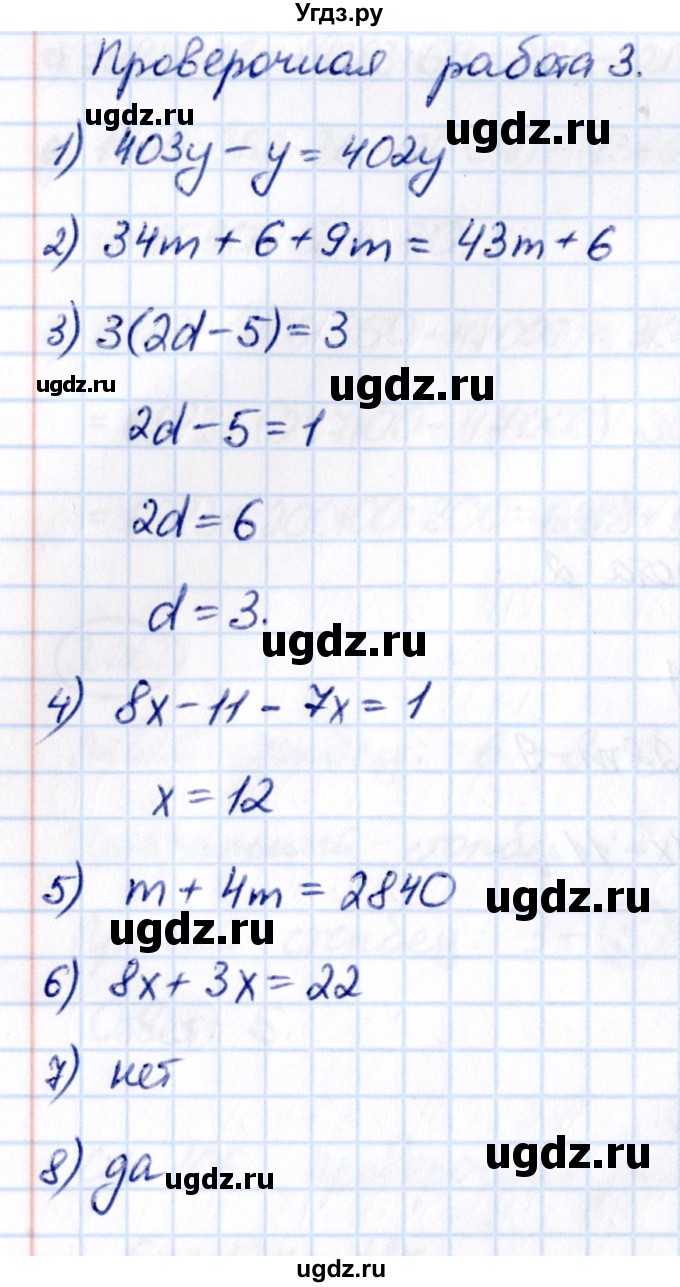 Угдз.ру
Проверочная работа 3.
ugdz.ru
ugdz.ru
1) 403y - y = 402y
2) 34m + 6 + 9m = 43m + 6
3) 3(2d - 5) = 3
ugdz.ru
ugdz.ru
2d - 5 = 1
2d = 6
d = 3.
ugdz.ru
4) 8x - 11 - 7x = 1
x = 12
5) m + 4m = 2840
ugdz.ru
ugdz.ru
6) 8x + 3x = 22
7) нет
8) да
ugdz.ru
ugdz.ru
ugdz.ru